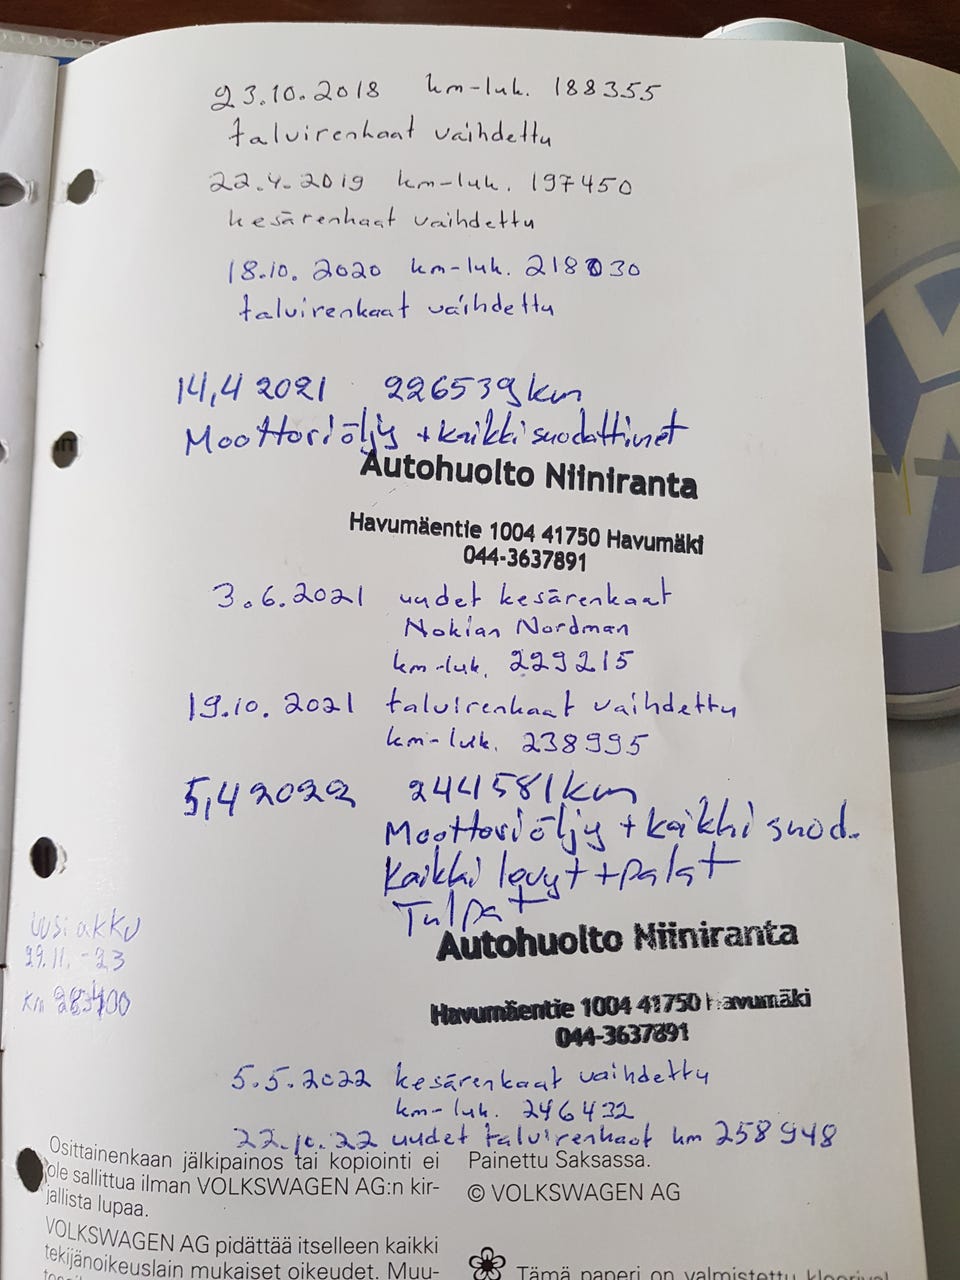 23.10.2018 km-luk. 188355
talvirenkaat vaihdettu
22.4.2019 km-luk. 197450
kesärenkaat vaihdettu
18.10.2020 km-luk. 218030
talvirenkaat vaihdettu
14,4 2021 226539 km
Moottoriöljy + kaikki suodattimet
Autohuolto Niiniranta
Havumäentie 1004 41750 Havumäki
044-3637891
3.6.2021 uudet kesärenkaat
Nokian Nordman
km-luk. 229215
19.10.2021 talvirenkaat vaihdettu
km-luk. 238995
5,4 2022 244581 km
Moottoriöljy + kaikki suod.
Kaikki levyt + palat
Tulpat
Autohuolto Niiniranta
Havumäentie 1004 41750 Havumäki
044-3637891
Uusi akku
29.11.-23
km
5.5.2022 kesärenkaat vaihdettu
km-luk. 246432
22.10.22 uudet talvirenkaat km 258948
Osittainenkaan jälkipainos tai kopiointi ei
ole sallittua ilman VOLKSWAGEN AG:n kir-
jallista lupaa.
VOLKSWAGEN AG pidättää itselleen kaikki
tekijänoikeuslain mukaiset oikeudet. Muu-
Painettu Saksassa.
© VOLKSWAGEN AG
Tämä paperi on valmistettu